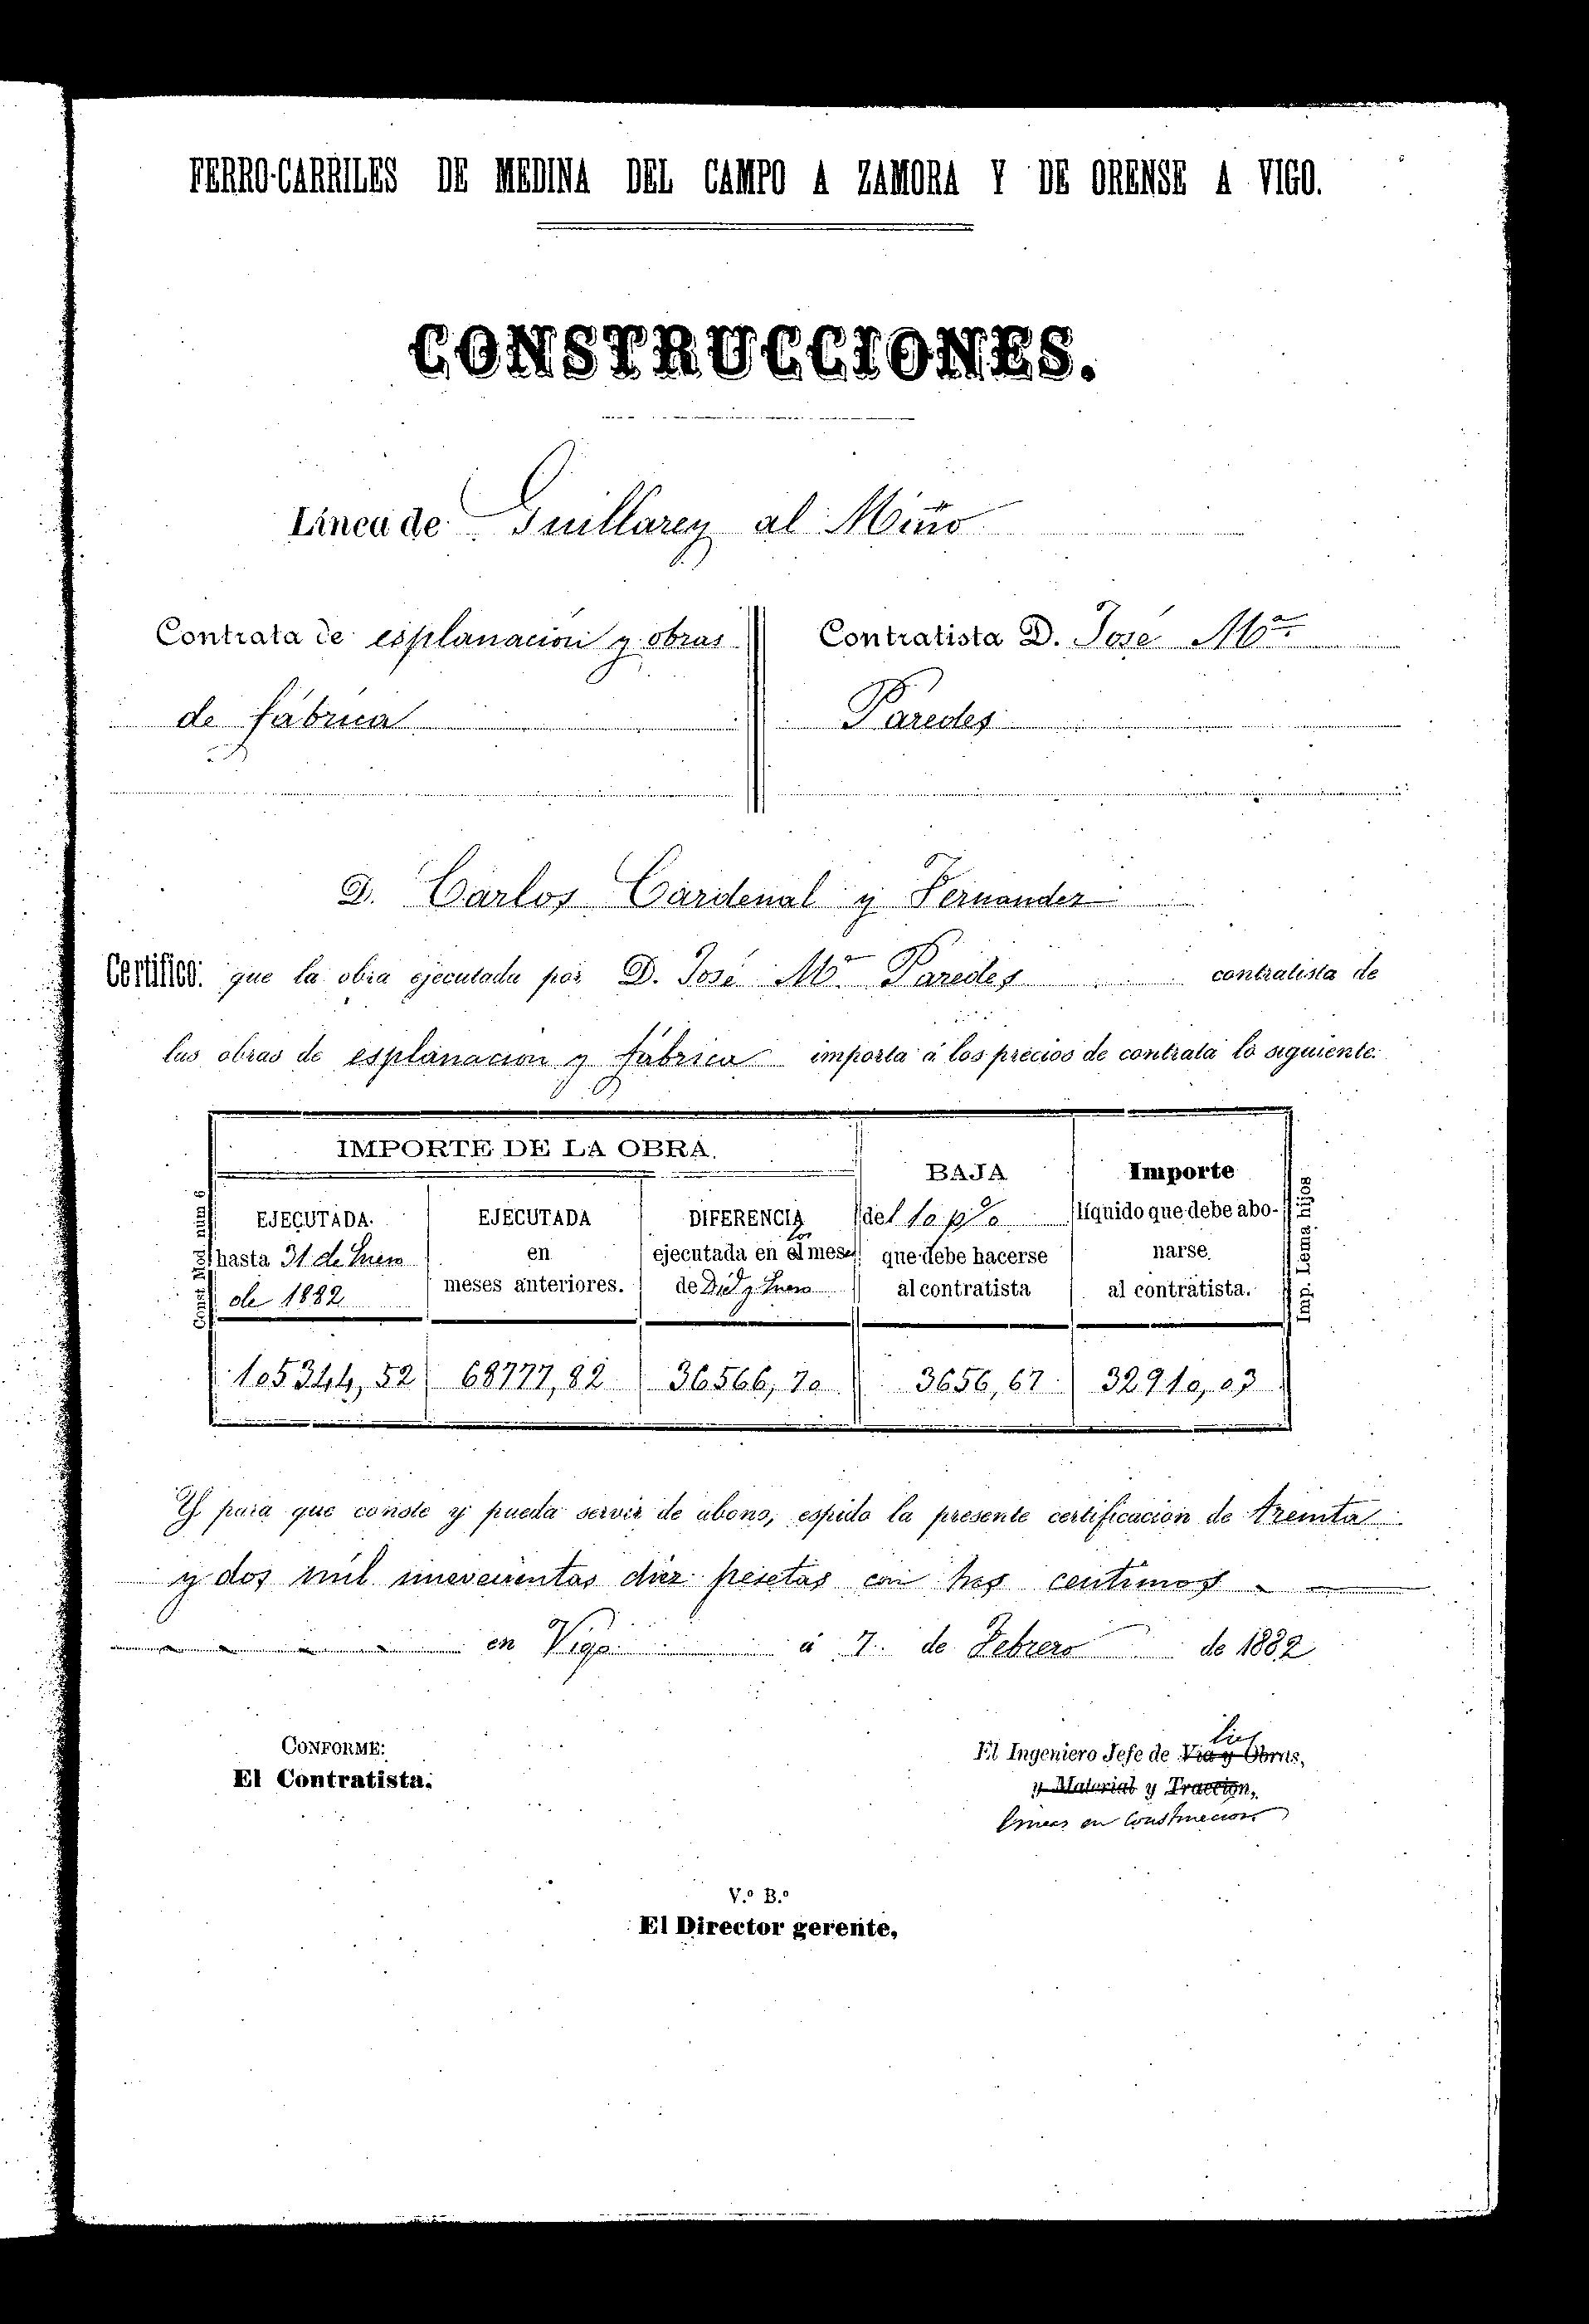 FERRO-CARRILES DE MEDINA DEL CAMPO A ZAMORA Y DE ORENSE A VIGO.
CONSTRUCCIONES.
Línea de Guillarey al Miño
Contrata de esplanacion y obras
de fábrica
Contratista D. José Mª
Paredes
D. Carlos Cardenal y Fernandez
Certifico: que la obra ejecutada por D. José Mª Paredes contratista de
las obras de esplanacion y fábrica importa á los precios de contrata lo siguiente:
IMPORTE DE LA OBRA.
EJECUTADA
hasta 31 de Enero
de 1882
EJECUTADA
en
meses anteriores.
DIFERENCIA
ejecutada en el los meses
de Dic.e y Enero
BAJA
del 10 p%
que debe hacerse
al contratista
Importe
líquido que debe abo-
narse
al contratista.
105344,52 68777,82 36566,70 3656,67 32910,03
Const. Mod. num 6
Imp. Lema hijos
Y para que conste y pueda servir de abono, espido la presente certificacion de treinta
y dos mil nuevecientas diez pesetas con tres centimos
en Vigo á 7 de Febrero de 1882
CONFORME:
El Contratista.
El Ingeniero Jefe de Via y Obras,
y Material y Traccion,
lineas en Construccion
V.º B.º
El Director gerente,